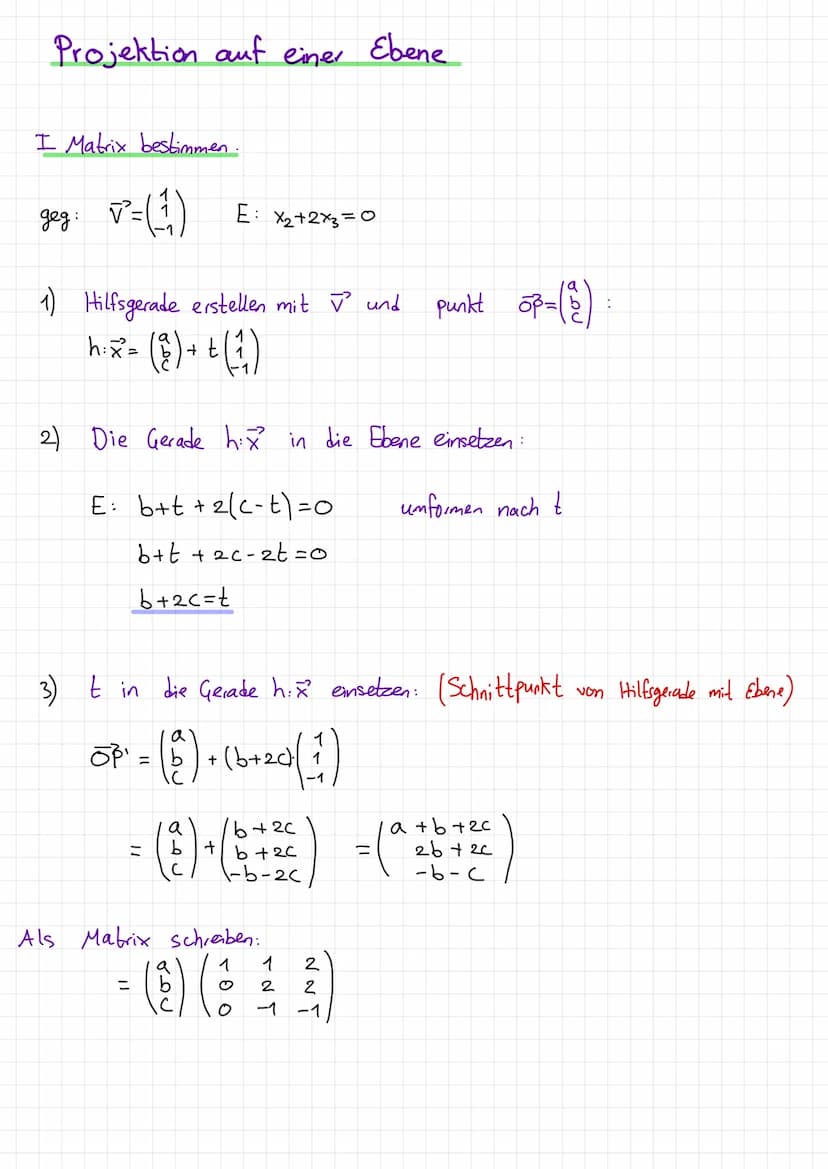 Projektion auf einer Ebene
I Matrix bestimmen.
geg: v⃗ = (1 1 -1) E: x₂+2x₃=0
1) Hilfsgerade erstellen mit v⃗ und punkt OP⃗=(a b c) :
h:x⃗ = (a b c) + t(1 1 -1)
2) Die Gerade h:x⃗ in die Ebene einsetzen:
E: b+t + 2(c-t)=0 umformen nach t
b+t + 2c-2t=0
b+2c=t
3) t in die Gerade h:x⃗ einsetzen: (Schnittpunkt von Hilfsgerade mit Ebene)
OP⃗' = (a b c) + (b+2c)·(1 1 -1)
= (a b c) + (b+2c b+2c -b-2c) = (a+b+2c 2b+2c -b-c)
Als Matrix schreiben:
= (a b c) (1 1 2 0 2 2 0 -1 -1)